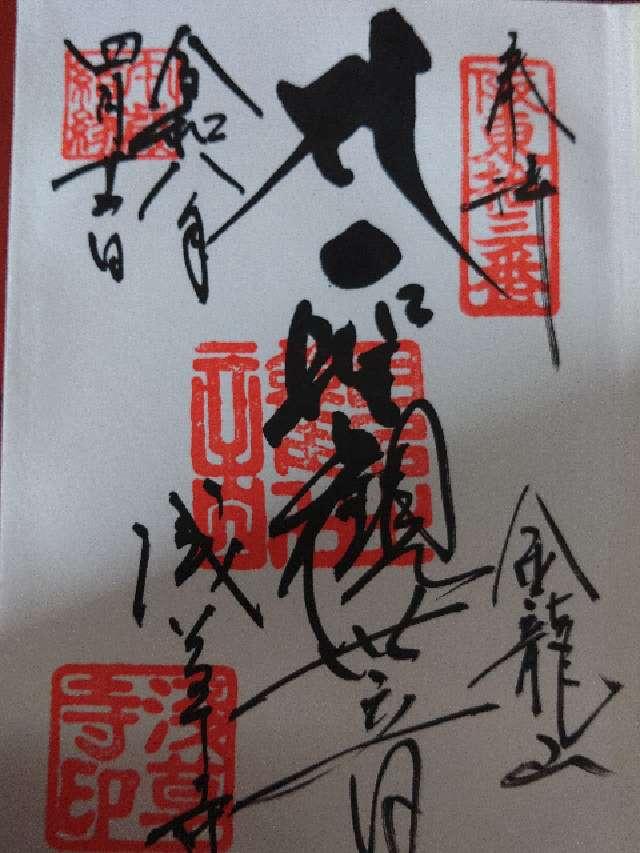 奉拝
坂東拾三番
金龍山
聖観世音
浅草寺
令和八年
四月
浅草寺印